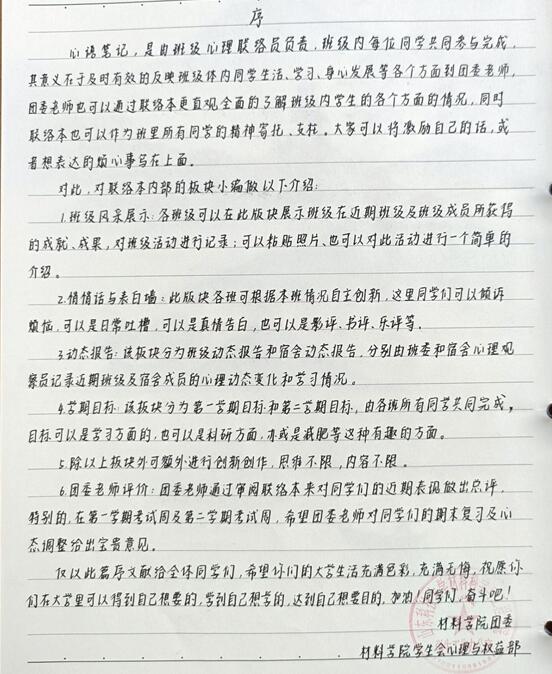 序
心语笔记，是由班级心理联络员负责，班级内每位同学共同参与完成，
其意义在于及时有效的反映班级体内同学生活、学习、身心发展等各个方面到团委老师，
团委老师也可以通过联络本更直观全面的了解班级内学生的各个方面的情况，同时
联络本也可以作为班里所有同学的精神寄托、支柱。大家可以将激励自己的话，或
者想表达的烦心事写在上面。
对此，对联络本内部的板块小编做以下介绍：
1.班级风采展示：各班级可以在此版块展示班级在近期班级及班级成员所获得
的成就、成果，对班级活动进行记录；可以粘贴照片、也可以对此活动进行一个简单的
介绍。
2.悄悄话与表白墙：此版块各班可根据本班情况自主创新，这里同学们可以倾诉
烦恼，可以是日常吐槽，可以是真情告白，也可以是影评、书评、乐评等．
3.动态报告：该板块分为班级动态报告和宿舍动态报告，分别由班委和宿舍心理观
察员记录近期班级及宿舍成员的心理动态变化和学习情况。
4.学期目标：该板块分为第一学期目标和第二学期目标，由各班所有同学共同完成，
目标可以是学习方面的，也可以是科研方面，亦或是减肥等这种有趣的方面。
5.除以上板块外可额外进行创新创作，思维不限，内容不限。
6.团委老师评价：团委老师通过审阅联络本来对同学们的近期表现做出总评．
特别的，在第一学期考试周及第二学期考试周，希望团委老师对同学们的期末复习及心
态调整给出宝贵意见。
仅以此篇序文献给全体同学们，希望你们的大学生活充满色彩，充满无悔，祝愿你
们在大学里可以得到自己想要的，学到自己想学的，达到自己想要目的，加油！同学们，奋斗吧！
材料学院团委
材料学院学生会心理与权益部